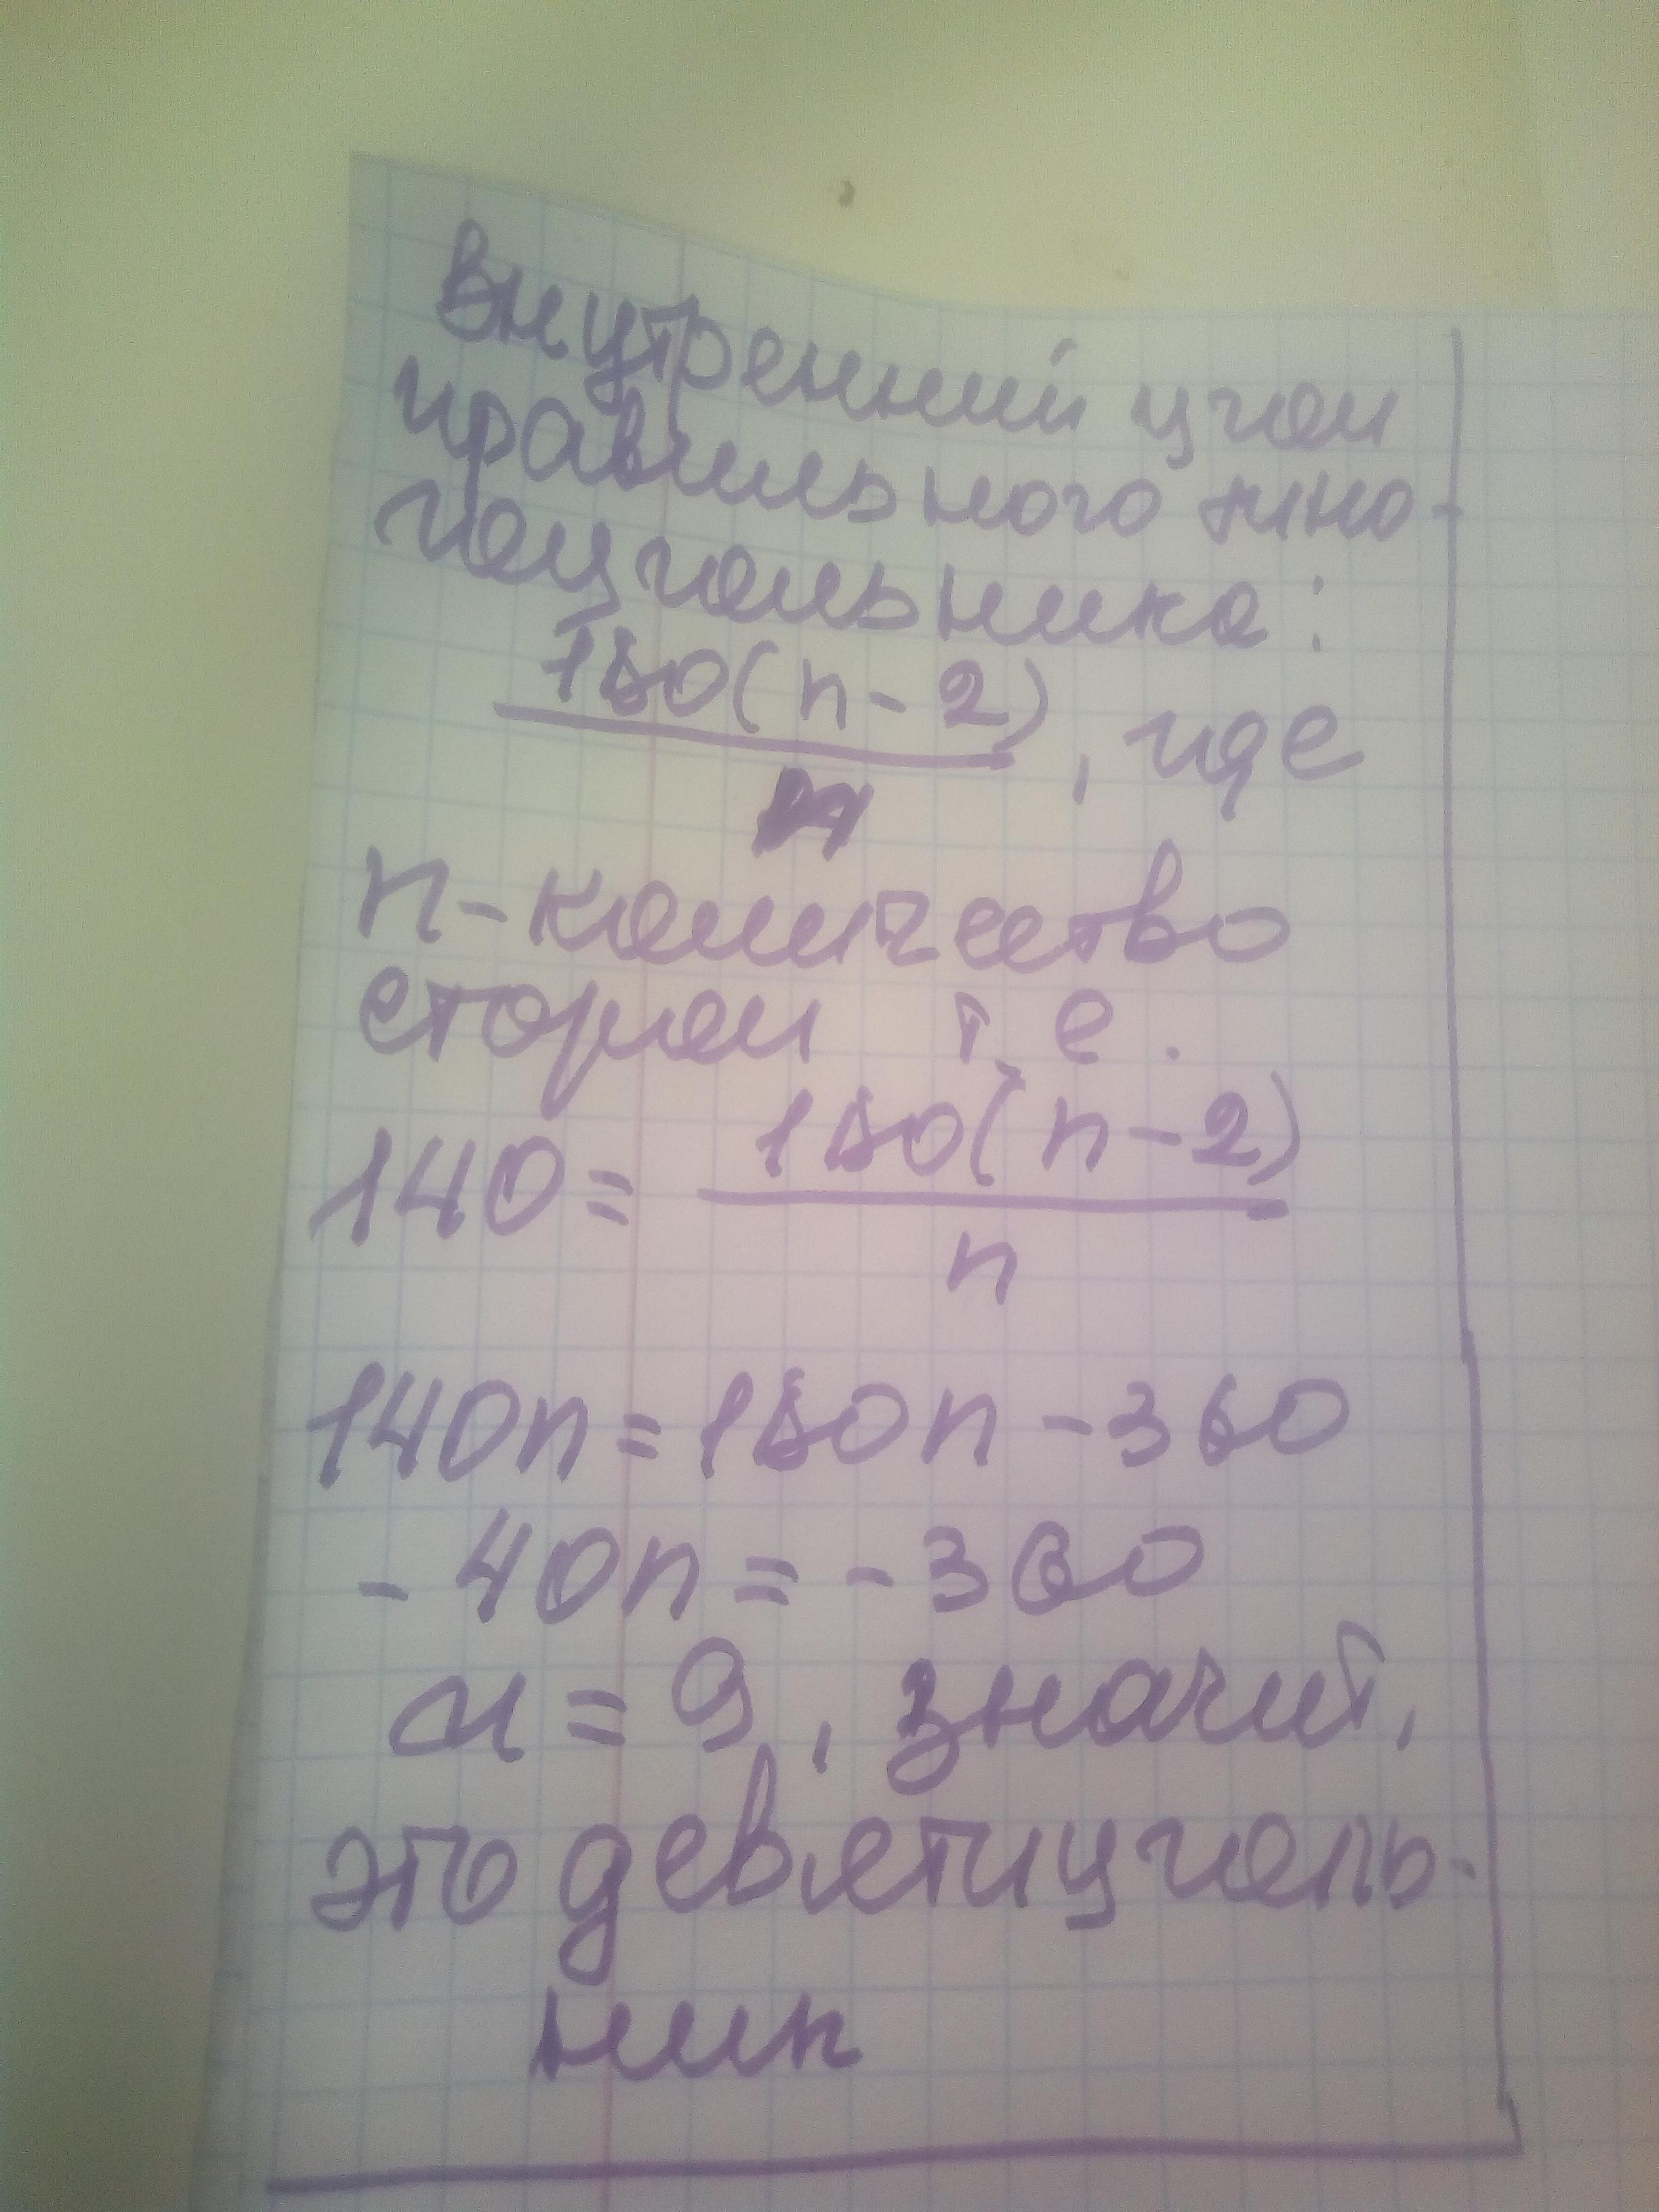 Внутренний угол
правильного мно-
гоугольника:
180(n-2)
n
, где
n-количество
сторон т.е.
140=
180(n-2)
n
140n=180n-360
-40n=-360
n=9, значит,
это девятиуголь-
ник